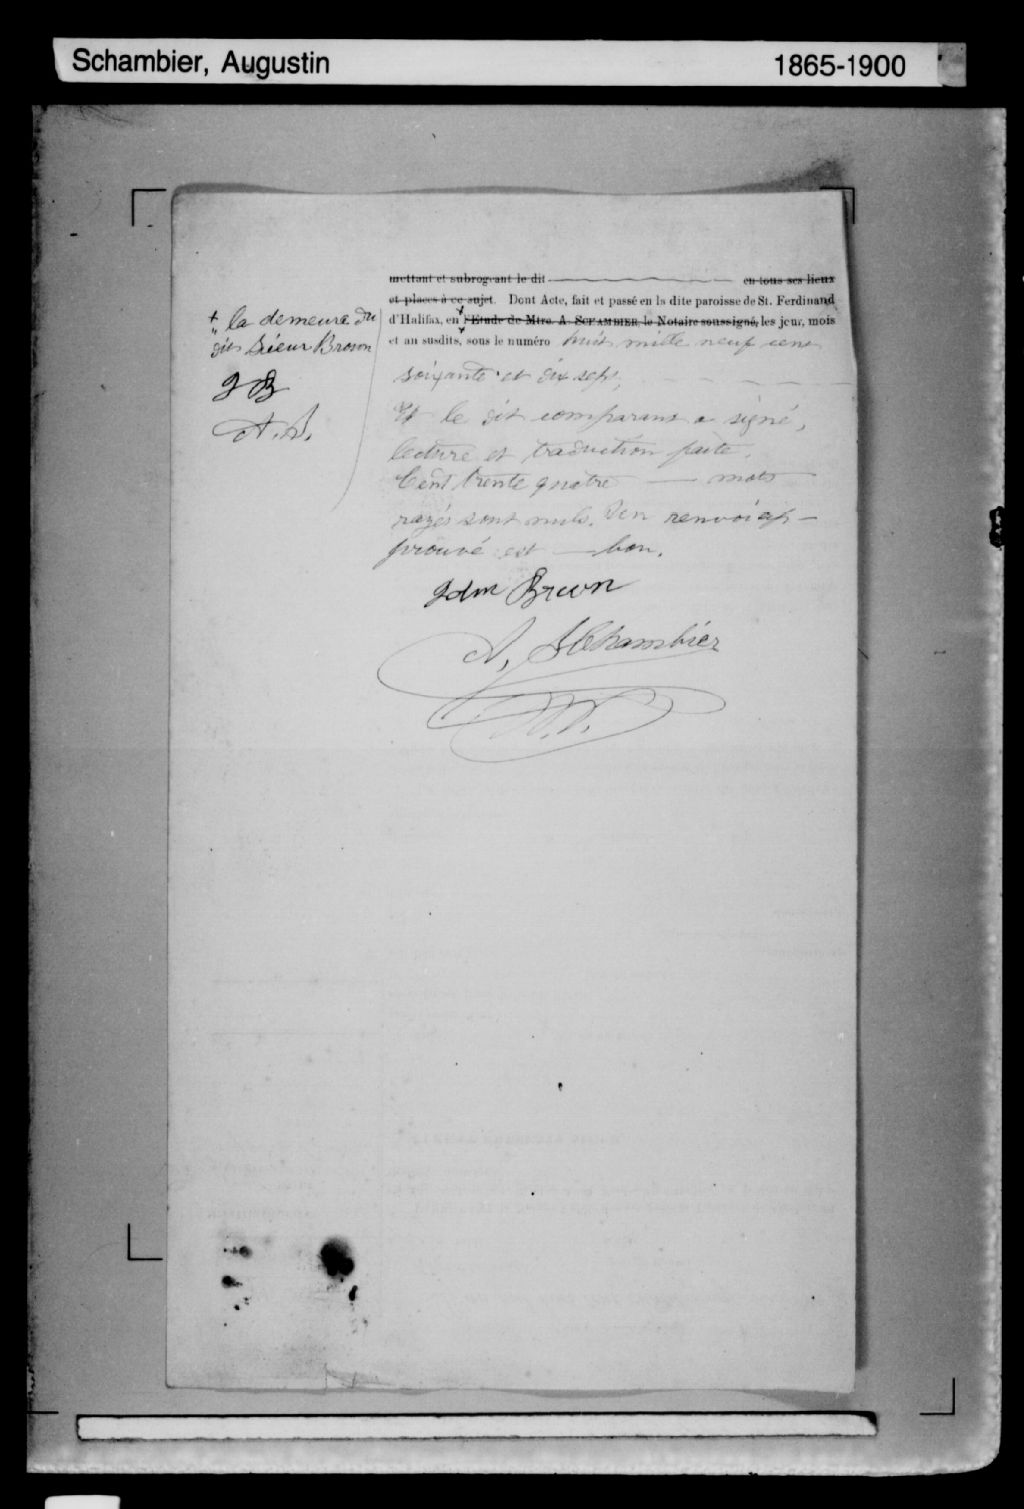 Schambier, Augustin
1865-1900
mettant et subrogeant le dit en tous ses lieux
et places à ce sujet. Dont Acte, fait et passé en la dite paroisse de St. Ferdinand
d'Halifax, en + l'Etude de Mtre. A. SCHAMBIER, le Notaire soussigné, les jour, mois
et an susdits, sous le numéro huit mille neuf cent
soixante et dix sept.
+ la demeure du
dit Sieur Brown
J B
A. S.
Et le dit comparant a signé,
lecture et traduction faite.
Cent trente quatre — mots
rayés sont nuls. Un renvoi ap-
prouvé est — bon.
John Brown
A. Schambier
N. P.